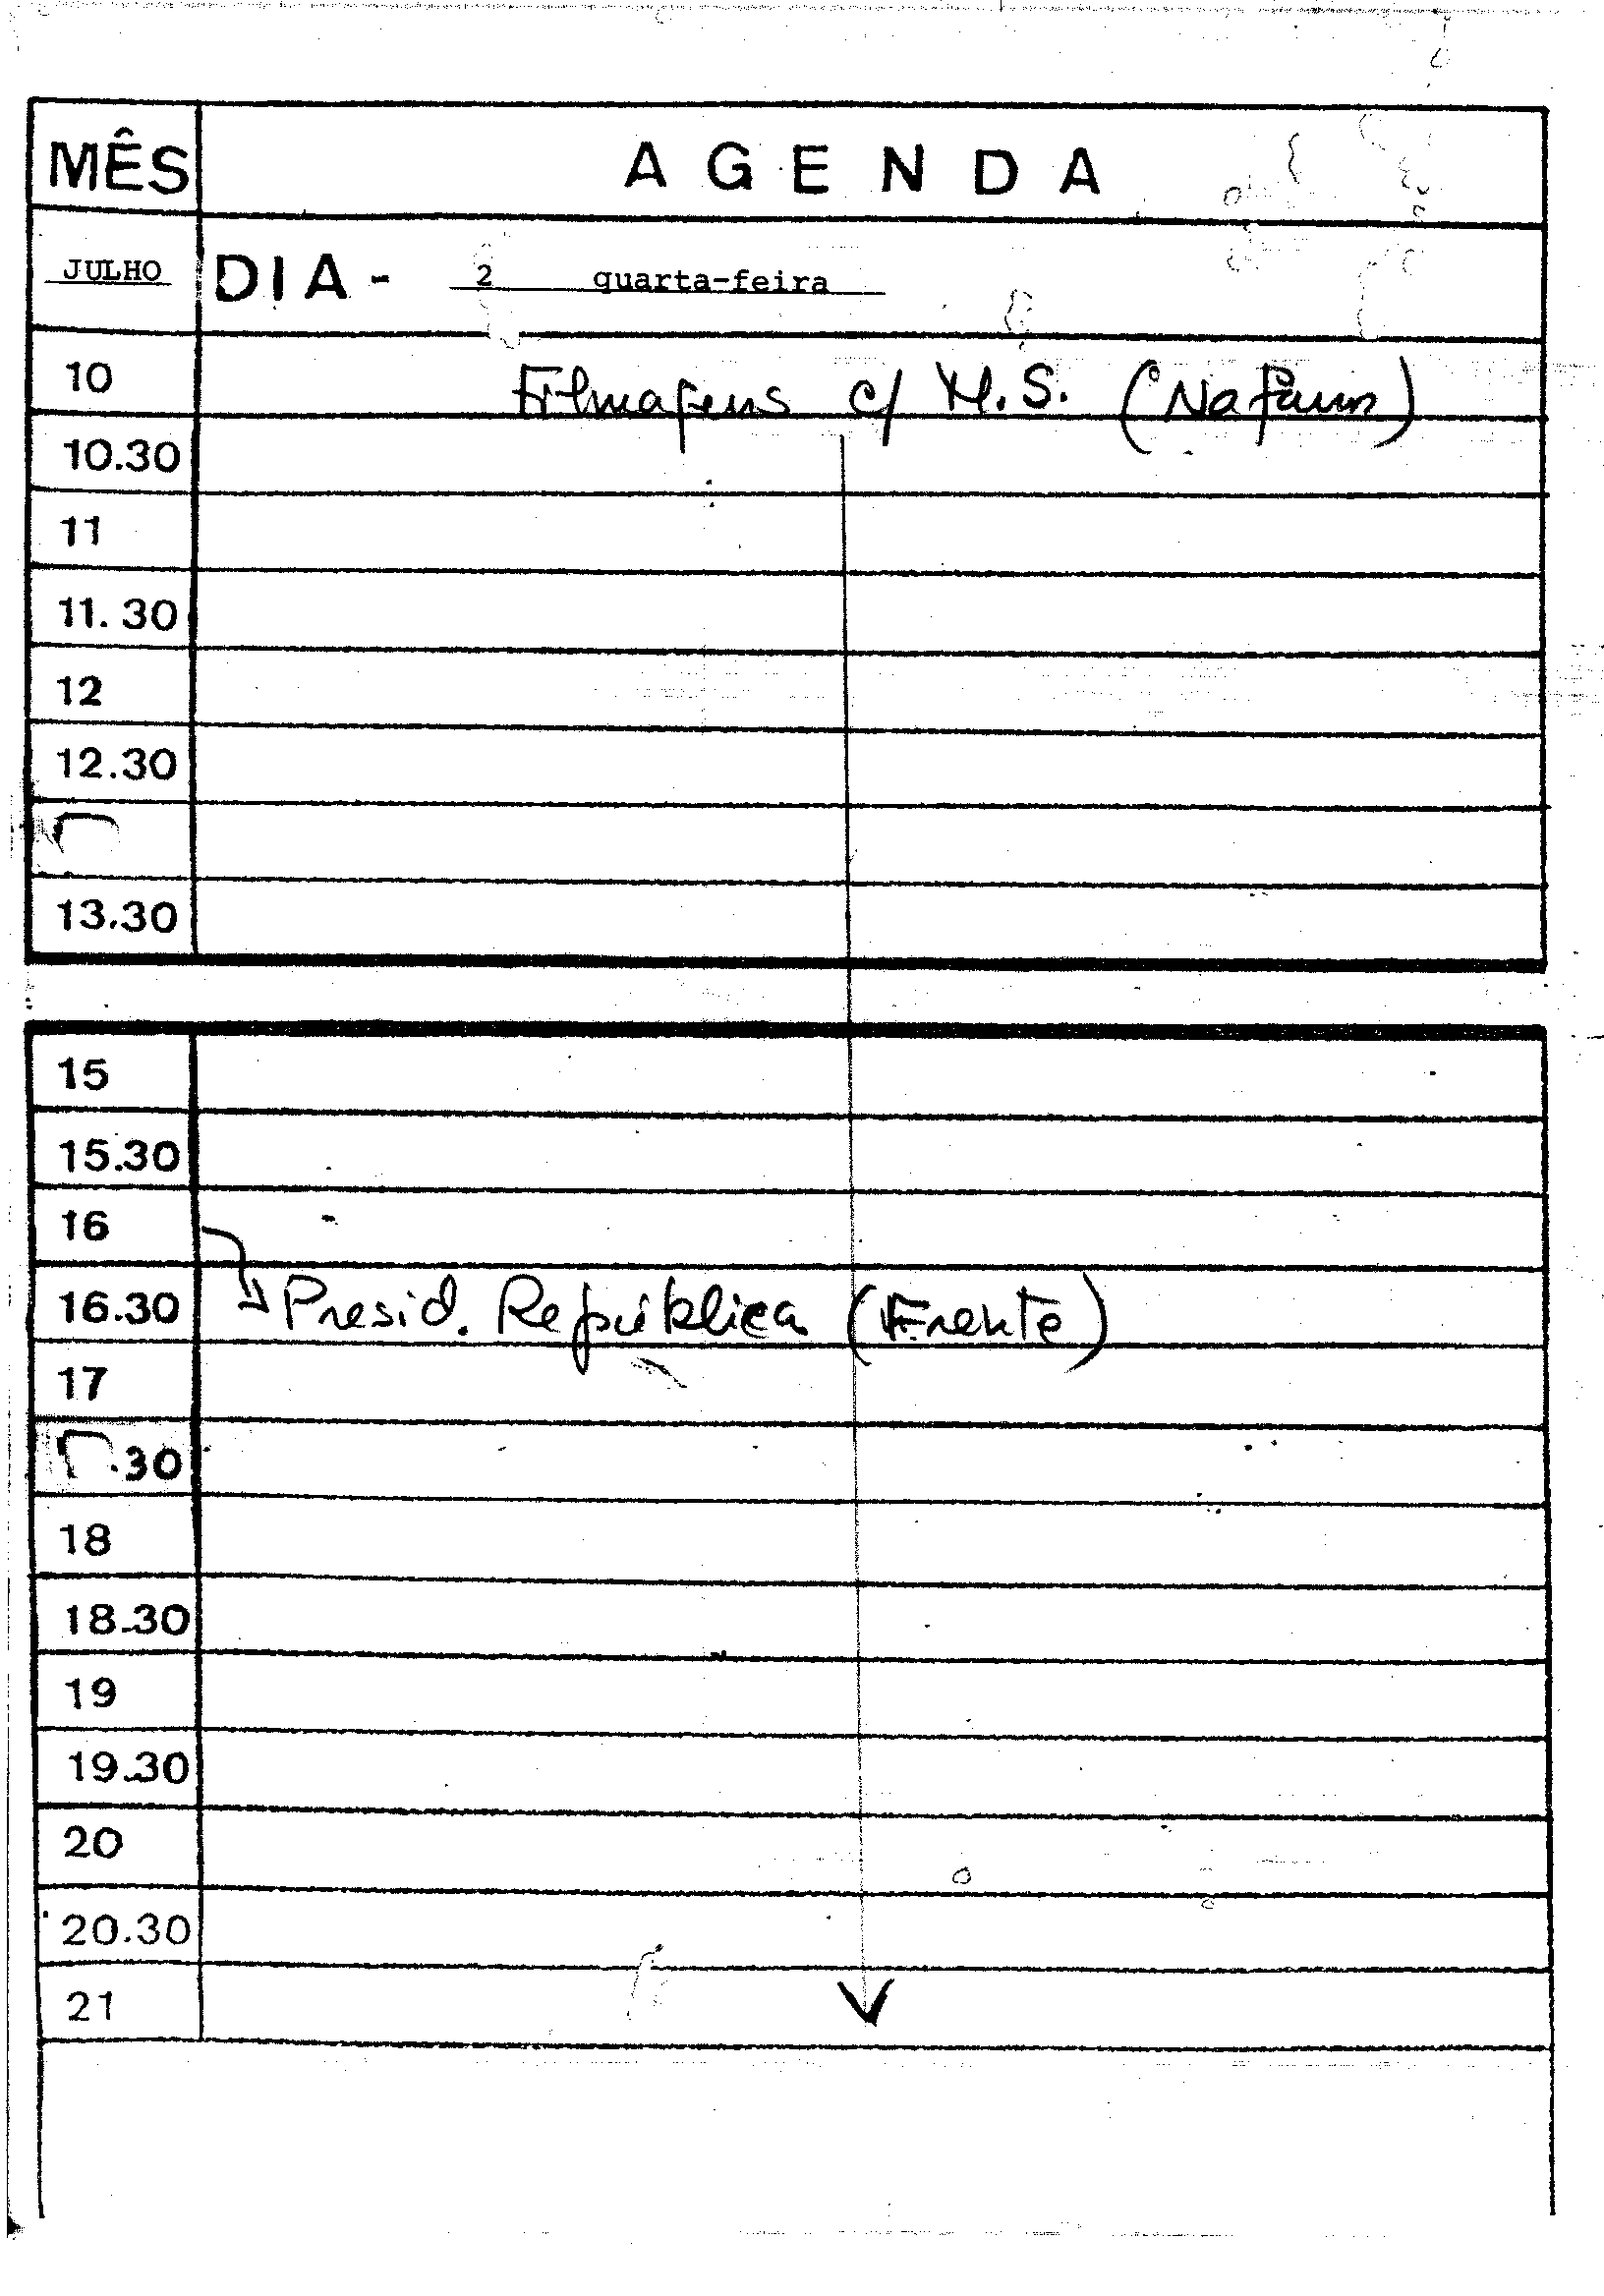 MÊS AGENDA
JULHO DIA - 2 quarta-feira
10 Filmagens c/ M.S. (Nafarros)
10.30
11
11.30
12
12.30
13.30
15
15.30
16
16.30 Presid. República (Frente)
17
.30
18
18.30
19
19.30
20
20.30
21